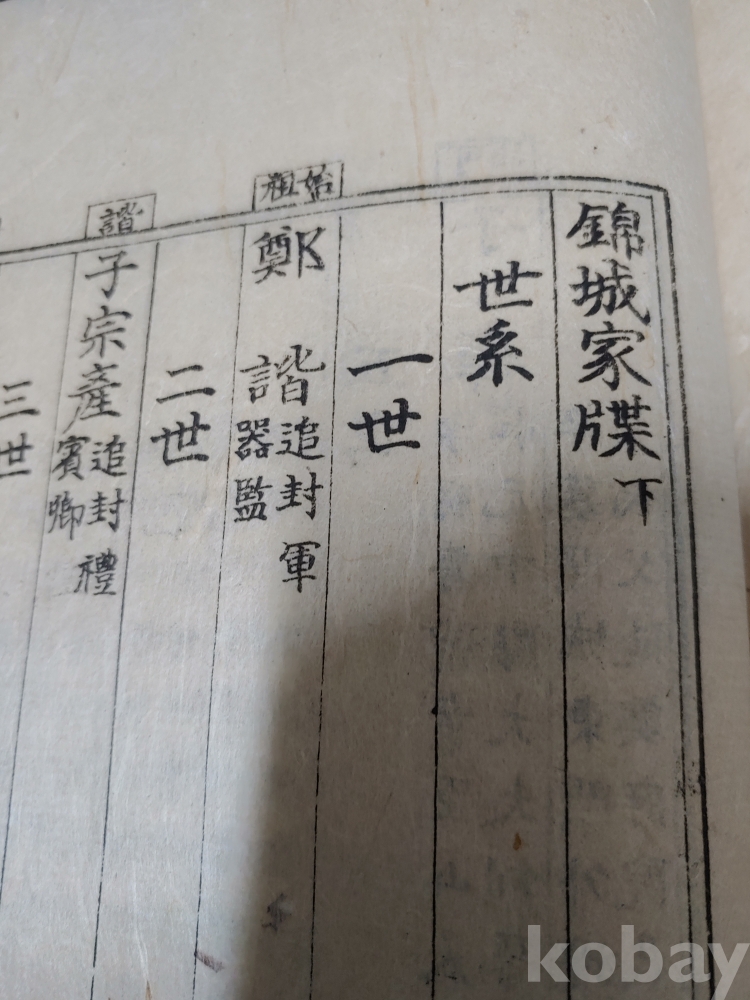 錦城家牒下
世系
一世
始祖
鄭 諧追封軍器監
二世
諧
子宗產追封禮賓卿
三世
kobay